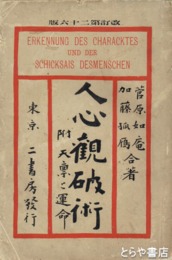 改訂第二十六版
ERKENNUNG DES CHARACKTES
UND DER
SCHICKSAIS DESMENSCHEN
菅原如庵
加藤孤鴈 合著
人心観破術
附 天禀と運命
東京 二書房發行
とらや書店